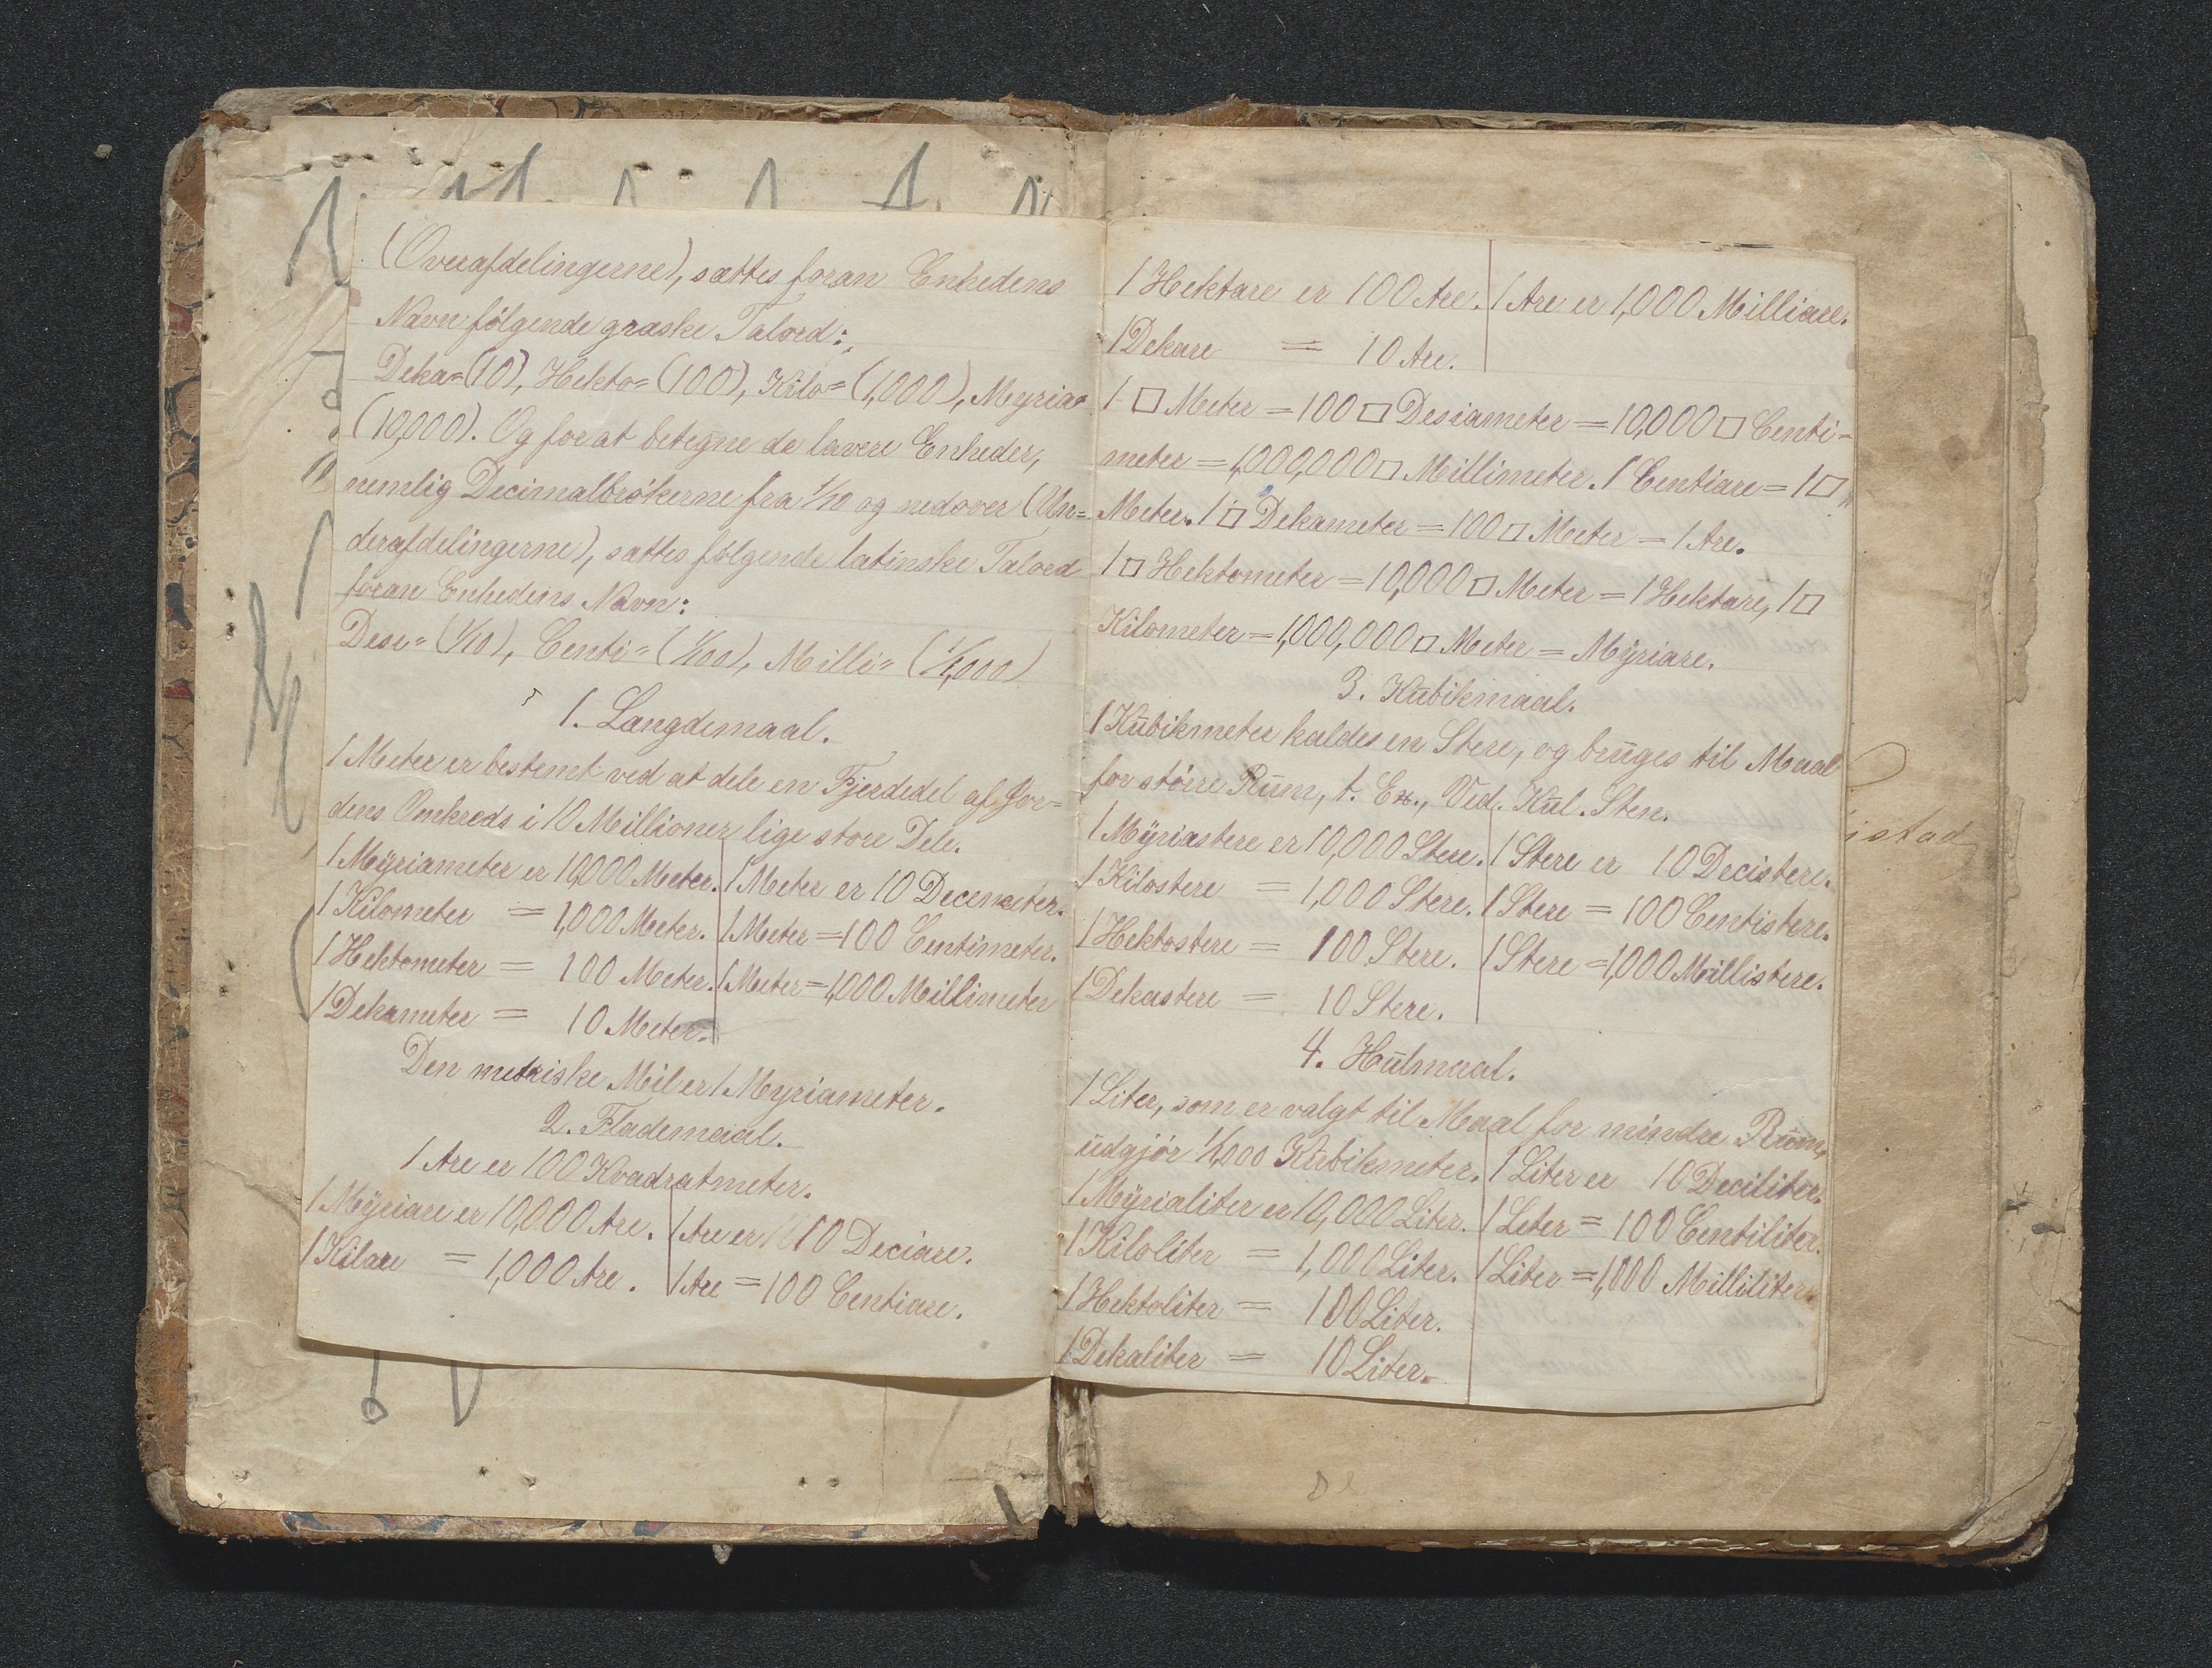 (Overafdelingerne), sættes foran Enhedens
Navn følgende græske Talord:
Deka=(10), Hekto=(100), Kilo=(1,000), Myria=
(10,000). Og for at betegne de lavere Enheder,
nemlig Decimalbrøkerne fra 1/10 og nedover (Un=
derafdelingerne), sættes følgende latinske Talord
foran Enhedens Navn:
Desi=(1/10), Centi=(1/100), Milli=(1/1,000)
1. Længdemaal.
1 Meter er bestemt ved at dele en Fjerdedel af Jor=
dens Omkreds i 10 Millioner lige store Dele.
1 Myriameter er 10,000 Meter. 1 Meter er 10 Decimeter.
1 Kilometer = 1,000 Meter. 1 Meter = 100 Centimeter.
1 Hektometer = 100 Meter. 1 Meter = 1,000 Millimeter
1 Dekameter = 10 Meter.
Den metriske Mil er 1 Myriameter.
2. Flademaal.
1 Are er 100 Kvadratmeter.
1 Myriare er 10,000 Are. 1 Are er 10 Deciare.
1 Kilare = 1,000 Are. 1 Are = 100 Centiare.
1 Hektare er 100 Are. 1 Are er 1,000 Milliare.
1 Dekare = 10 Are.
1 □ Meter = 100 □ Desiameter = 10,000 □ Centi=
meter = 1,000,000 □ Millimeter. 1 Centiare = 1 □
Meter. 1 □ Dekameter = 100 □ Meter = 1 Are.
1 □ Hektometer = 10,000 □ Meter = 1 Hektare, 1 □
Kilometer = 1,000,000 □ Meter = Myriare.
3. Kubikmaal.
1 Kubikmeter kaldes en Stere, og bruges til Maal
for større Rum, t. Ex., Ved. Kul. Sten.
1 Myriastere er 10,000 Stere. 1 Stere er 10 Decistere.
1 Kilostere = 1,000 Stere. 1 Stere = 100 Centistere.
1 Hektostere = 100 Stere. 1 Stere = 1,000 Millistere.
1 Dekastere = 10 Stere.
4. Hulmaal.
1 Liter, som er valgt til Maal for mindre Rum,
udgjør 1/1,000 Kubikmeter. 1 Liter er 10 Deciliter.
1 Myrialiter er 10,000 Liter. 1 Liter = 100 Centiliter.
1 Kiloliter = 1,000 Liter. 1 Liter = 1,000 Milliliter.
1 Hektoliter = 100 Liter.
1 Dekaliter = 10 Liter.
istad